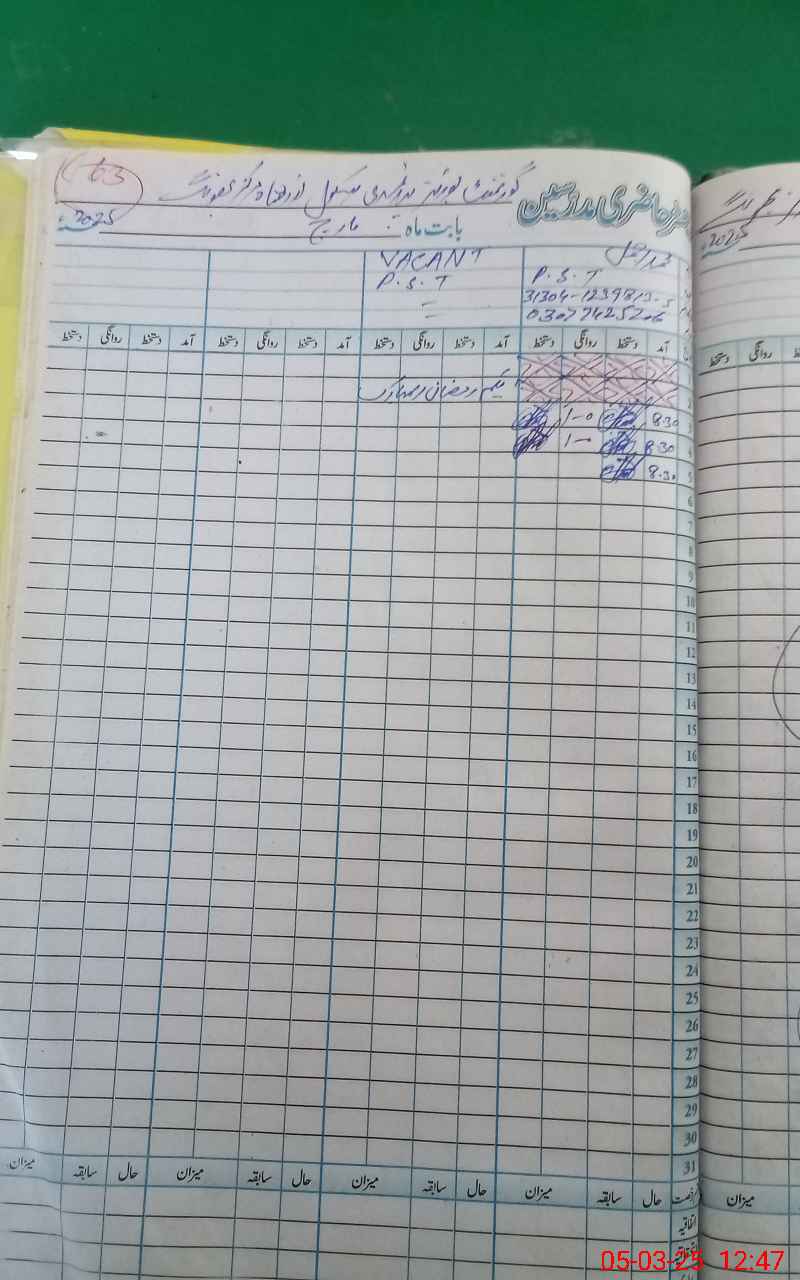 63
حاضری مدرسین
گورنمنٹ بوائز پرائمری سکول
بابت ماه : مارچ 2025
محمد
P.S.T
31304-1239813-5
VACANT
P.S.T
=
آمد دستخط روانگی دستخط آمد دستخط روانگی دستخط آمد دستخط روانگی دستخط آمد دستخط روانگی دستخط
1
2 یکم رمضان المبارک
3 8.30 1-0
4 8.30 1-0
5 8.30
6
7
8
9
10
11
12
13
14
15
16
17
18
19
20
21
22
23
24
25
26
27
28
29
30
31
رخصت حال سابقہ میزان حال سابقہ میزان حال سابقہ میزان حال سابقہ میزان
اتفاقیہ
2025
روانگی دستخط
میزان
05-03-25 12:47